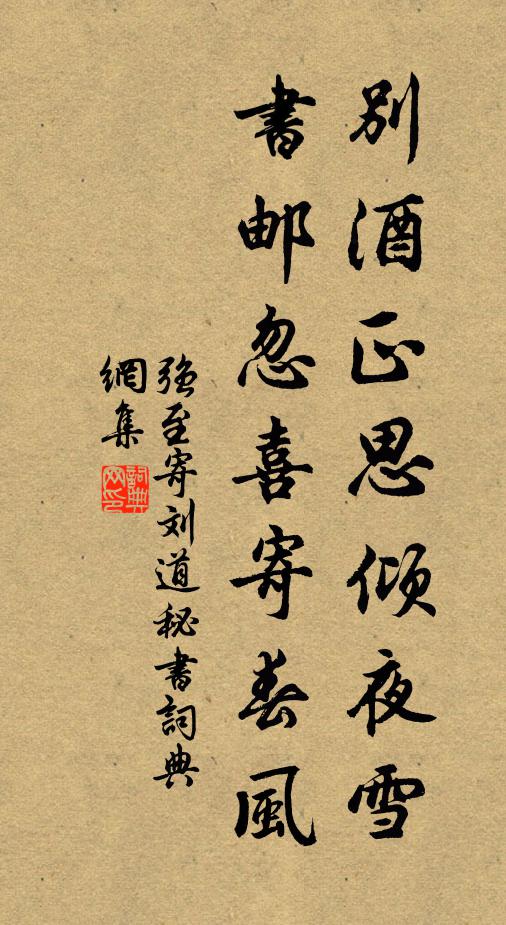 别酒正思倾夜雪
書邮忽喜寄春風
强至寄刘道秘書詞典
網集
詞典
网印